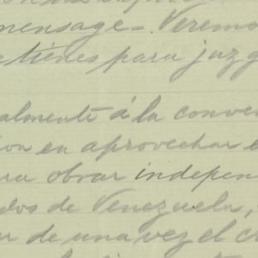 mensage. Veremo
tienes para juzg
almente á la conven
en aprovechar e
obrar indepen
dos de Venezuela,
de una vez el c